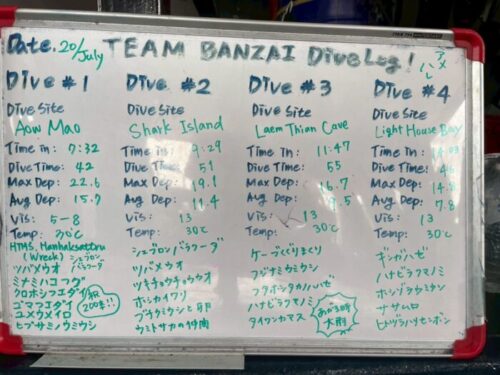 Date. 20/July TEAM BANZAI Dive Log!
Dive #1
Dive Site
Aow Mao
Time in: 7:32
Dive Time: 42
Max Dep: 22.6
Avg Dep: 15.7
Vis: 5-8
Temp: 30℃
HTMS. Manhaksattru
(Wreck)
ツバメウオ
ミナミハコフグ
クロホシフエダイ
ゴマフエダイ
ユメウメイロ
ヒブサミノウミウシ
Dive #2
Dive Site
Shark Island
Time in: 9:29
Dive Time: 51
Max Dep: 19.1
Avg Dep: 11.4
Vis: 13
Temp: 30℃
シェブロンバラクーダ
ツバメウオ
ツキチョウチョウウオ
ホシカイワリ
Dive #3
Dive Site
Laem Thian Cave
Time in: 11:47
Dive Time: 55
Max Dep: 16.7
Avg Dep: 9.5
Vis: 13
Temp: 30℃
ケーブぐりまくり
フジナミウミウシ
フタホシタカノハゼ
ハナビラクマノミ
タイワンカマス
Dive #4
Dive Site
Light House Bay
Time in: 14:03
Dive Time: 46
Max Dep: 14.8
Avg Dep: 7.8
Vis: 13
Temp: 30℃
ギンガハゼ
ハナビラクマノミ
ホソゾウウミウシ
ササムロ
ヒトヅラハリセンボン